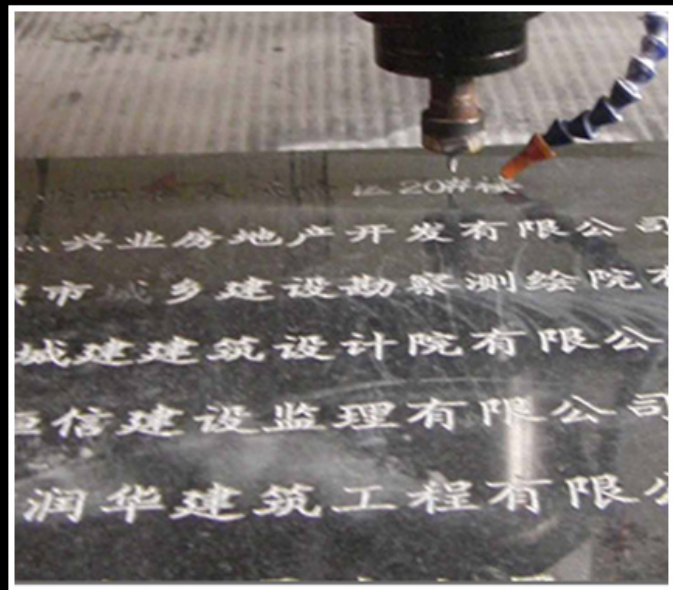 20
兴业房地产开发有限公司
市城乡建设勘察测绘院有
城建建筑设计院有限公
恒信建设监理有限公司
润华建筑工程有限公